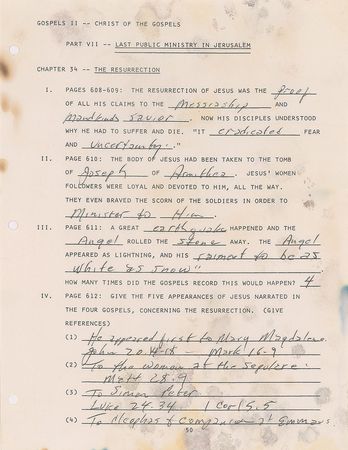 GOSPELS II -- CHRIST OF THE GOSPELS
PART VII -- LAST PUBLIC MINISTRY IN JERUSALEM
CHAPTER 34 -- THE RESURRECTION
I. PAGES 608-609: THE RESURRECTION OF JESUS WAS THE Proof
OF ALL HIS CLAIMS TO THE Messraship AND
Mandkinds Savior. NOW HIS DISCIPLES UNDERSTOOD
WHY HE HAD TO SUFFER AND DIE. "IT eradicates FEAR
AND Uncertainty."
II. PAGE 610: THE BODY OF JESUS HAD BEEN TAKEN TO THE TOMB
OF Joseph OF Armithea. JESUS' WOMEN
FOLLOWERS WERE LOYAL AND DEVOTED TO HIM, ALL THE WAY.
THEY EVEN BRAVED THE SCORN OF THE SOLDIERS IN ORDER TO
Minister to Him.
III. PAGE 611: A GREAT earthquake HAPPENED AND THE
Angel ROLLED THE stone AWAY. THE Angel
APPEARED AS LIGHTNING, AND HIS raiment to be as
white as snow"
HOW MANY TIMES DID THE GOSPELS RECORD THIS WOULD HAPPEN? 4
IV. PAGE 612: GIVE THE FIVE APPEARANCES OF JESUS NARRATED IN
THE FOUR GOSPELS, CONCERNING THE RESURRECTION. (GIVE
REFERENCES)
(1) He appeared first to Mary Magdalene
John 20 - Mark 16-9
(2) To the woman at the Sepulcre
Matt 28:9
(3) To Simon Peter
Luke 24.34 1 Cor 15.5
(4) To Cleophas & Companion at Emmaus
50